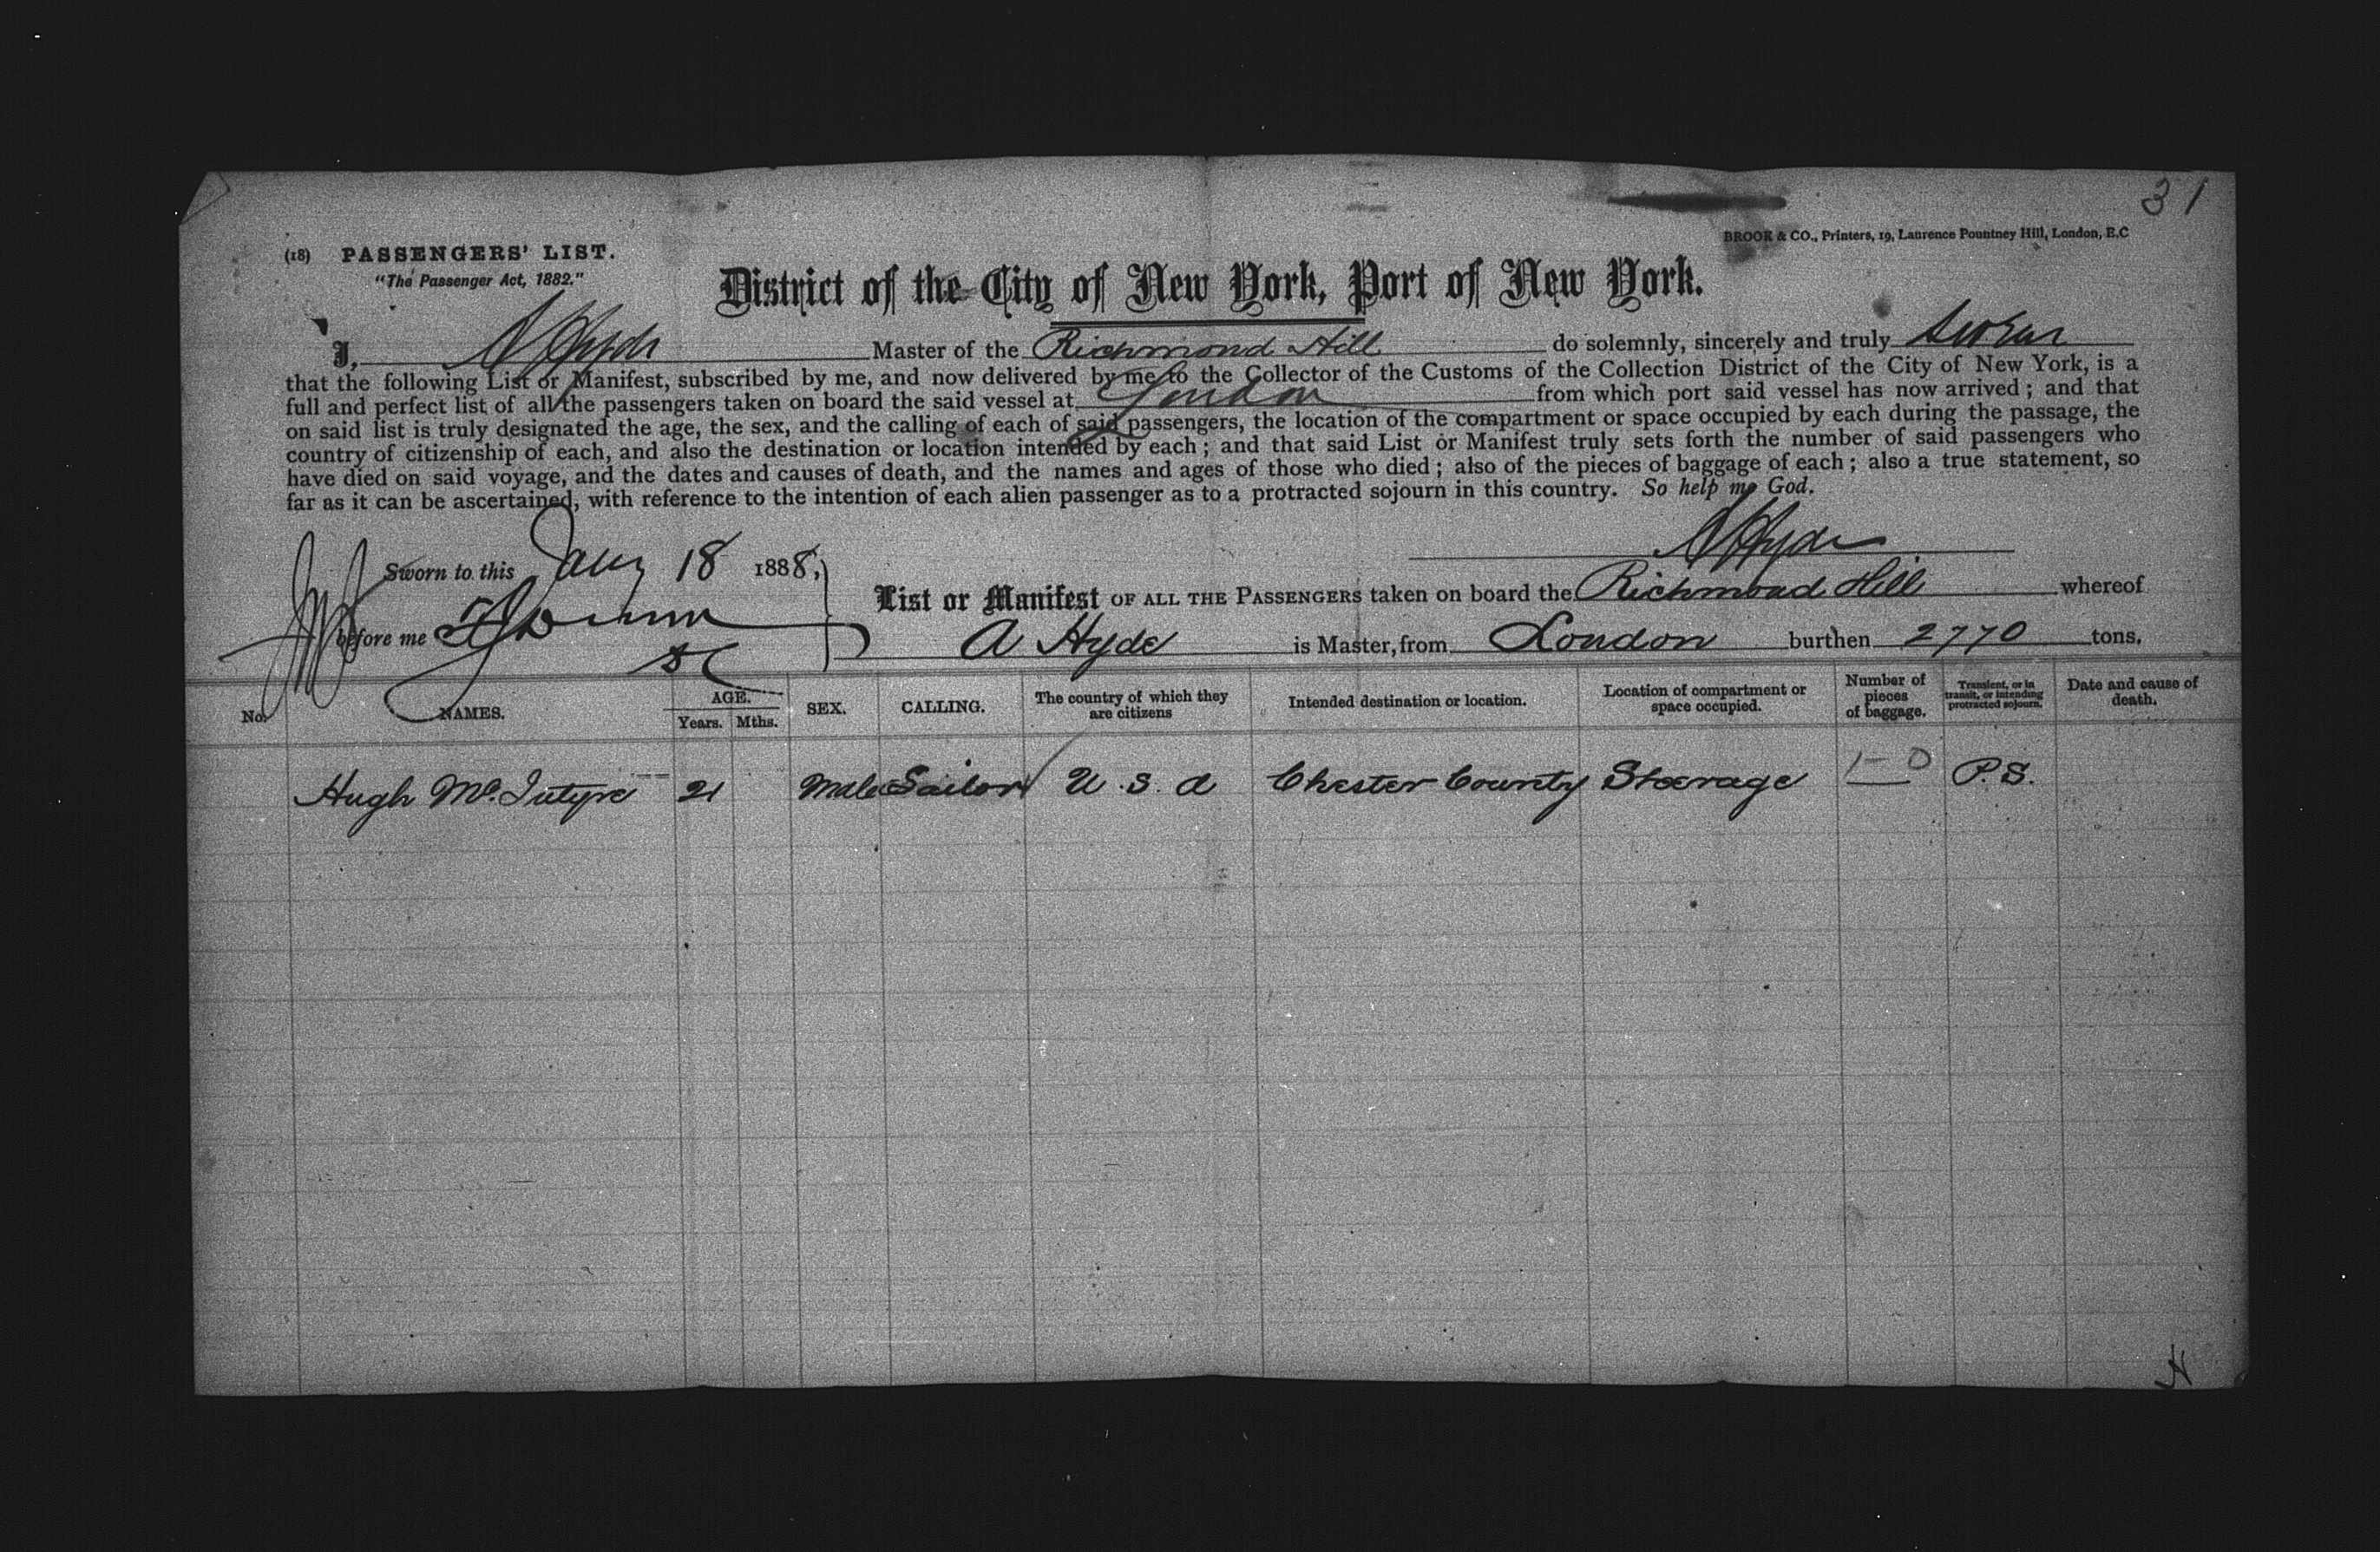 31
BROOK & CO., Printers, 19, Laurence Pountney Hill, London, E.C
(18) PASSENGERS' LIST.
"The Passenger Act, 1882."
District of the City of New York, Port of New York.
I, A Hyde Master of the Richmond Hill do solemnly, sincerely and truly swear
that the following List or Manifest, subscribed by me, and now delivered by me to the Collector of the Customs of the Collection District of the City of New York, is a
full and perfect list of all the passengers taken on board the said vessel at London from which port said vessel has now arrived; and that
on said list is truly designated the age, the sex, and the calling of each of said passengers, the location of the compartment or space occupied by each during the passage, the
country of citizenship of each, and also the destination or location intended by each; and that said List or Manifest truly sets forth the number of said passengers who
have died on said voyage, and the dates and causes of death, and the names and ages of those who died; also of the pieces of baggage of each; also a true statement, so
far as it can be ascertained, with reference to the intention of each alien passenger as to a protracted sojourn in this country. So help me God.
A Hyde
Sworn to this Jany 18 1888,
List or Manifest OF ALL THE PASSENGERS taken on board the Richmond Hill whereof
before me
A Hyde is Master, from London burthen 2770 tons.
No. NAMES. AGE. Years. Mths. SEX. CALLING. The country of which they are citizens Intended destination or location. Location of compartment or space occupied. Number of pieces of baggage. Transient, or in transit, or intending protracted sojourn. Date and cause of death.
Hugh Mc. Intyre 21 Male Sailor U.S.A Chester County Steerage 1-0 P.S.